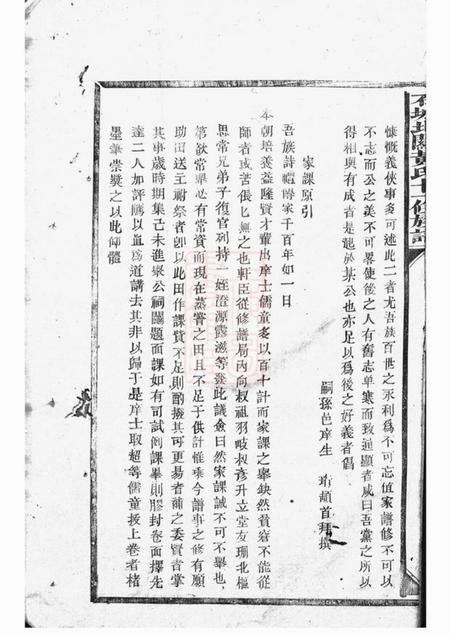 慷慨義俠事多可述此二者尤吾族百世之永利為不可忘值家譜修不可以
不志而公之美不可畧使後之人有舊志单寒而致通顯者咸曰吾黨之所以
得相與有成者是起於某公也亦足以為後之好義者倡
嗣孫邑庠生 頓首拜撰
家課原引
吾族詩禮傳家千百年如一日
本朝培養益隆賢才輩出庠士儒童多以百十計而家課之舉缺然貧窘不能從
師者或苦偎匕無之也軒臣從修譜局內向叔祖羽岐叔彥升立堂友珊北樞
思常兄弟子復官列持一姪澄源霞滋等發此議僉曰然家課誠不可不舉也
第欲常舉必有常資而現在蒸嘗之田且不足于供計惟乘今譜事之修有願
助田送主祔祭者卽以此田作課貲不足則酌撥其可更易者補之委賢者掌
其事歲時期集己未進眾公祠闔題面課如有司試例課畢則膠封卷面擇先
達二人加評騭以直為道請去其非以歸于是庠士取超等儒童拔上卷者楮
墨筆崇獎之以此師體